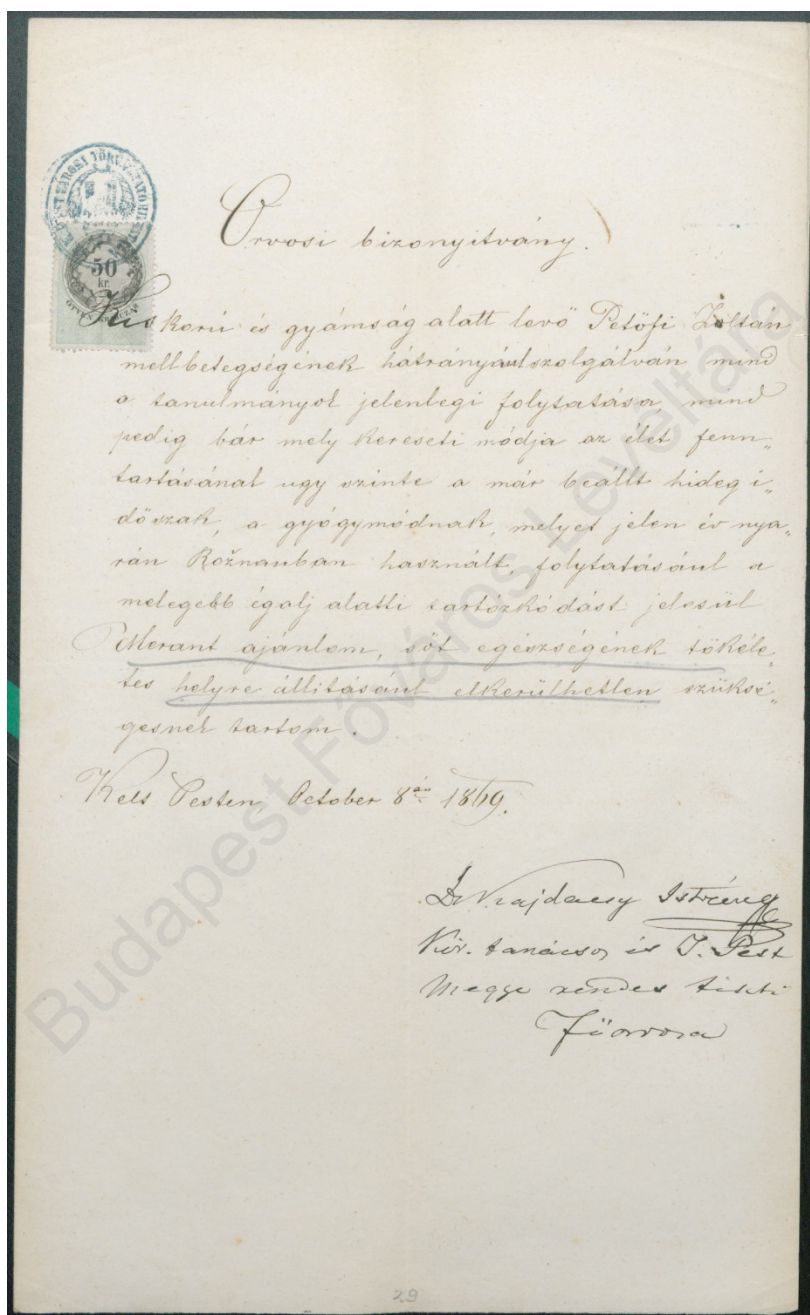 Orvosi bizonyitvány.
50
kr.
Kis korú és gyámság alatt levő Petőfi Zoltán
mellbetegségének hátrányául szolgálván mind
a tanulmányok jelenlegi folytatása, mind
pedig bár mely kereseti módja az élet fenn„
tartásának ugy szinte a már beállt hideg i„
dőszak, a gyógymódnak, melyet jelen év nya„
rán Rožnauban használt, folytatásául a
melegebb égalj alatti tartózkódást jelesül
Merant ajánlom, sőt egészségének tökéle„
tes helyre állitásául elkerülhetlen szüksé„
gesnek tartom.
Kelt Pesten, October 8án 1869.
Dr. István
Kir. tanácsos és T. Pest
Megye rendes tiszti
Főorvosa
29
Budapest Főváros Levéltára